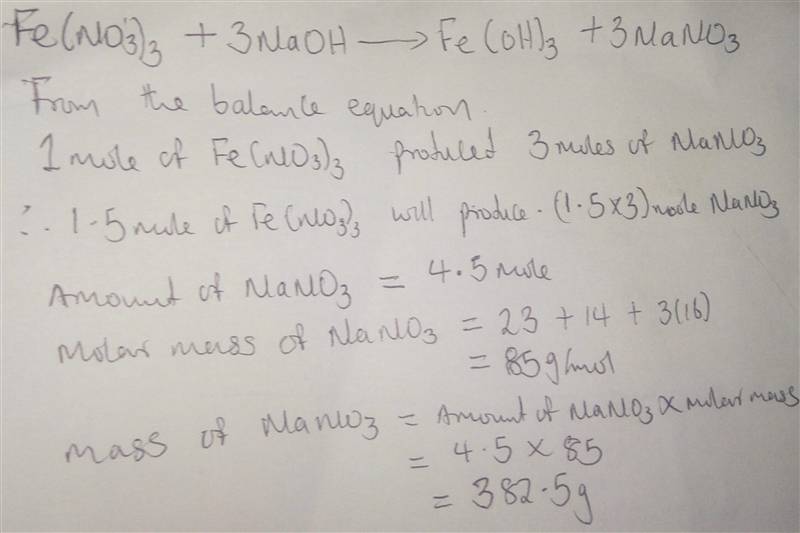 Fe(NO3)3 + 3NaOH → Fe(OH)3 + 3NaNO3
From the balance equation.
1 mole of Fe(NO3)3 produced 3 moles of NaNO3
∴ 1.5 mole of Fe(NO3)3 will produce. (1.5×3) mole NaNO3
Amount of NaNO3 = 4.5 mole
Molar mass of NaNO3 = 23 + 14 + 3(16)
= 85g/mol
mass of NaNO3 = Amount of NaNO3 × molar mass
= 4.5 × 85
= 382.5g